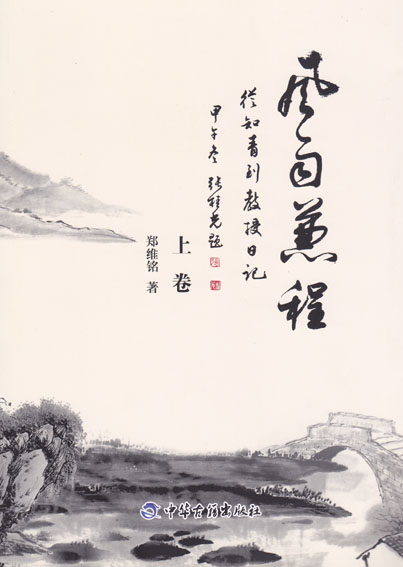 风雨兼程
從知青到教授日记
甲午冬 张桂光题
上卷
郑维铭 著
中华古籍出版社